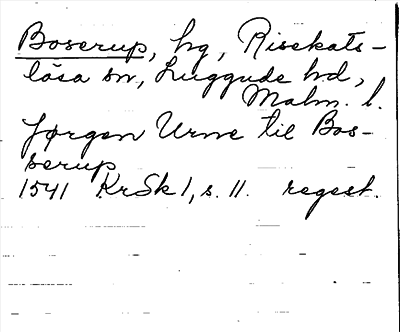 Boserup, hg, Risekats-
lösa sn, Luggude hd,
Malm. l.
Jørgen Urne til Bos-
serup
1541 KrSk 1, s. 11. regest.